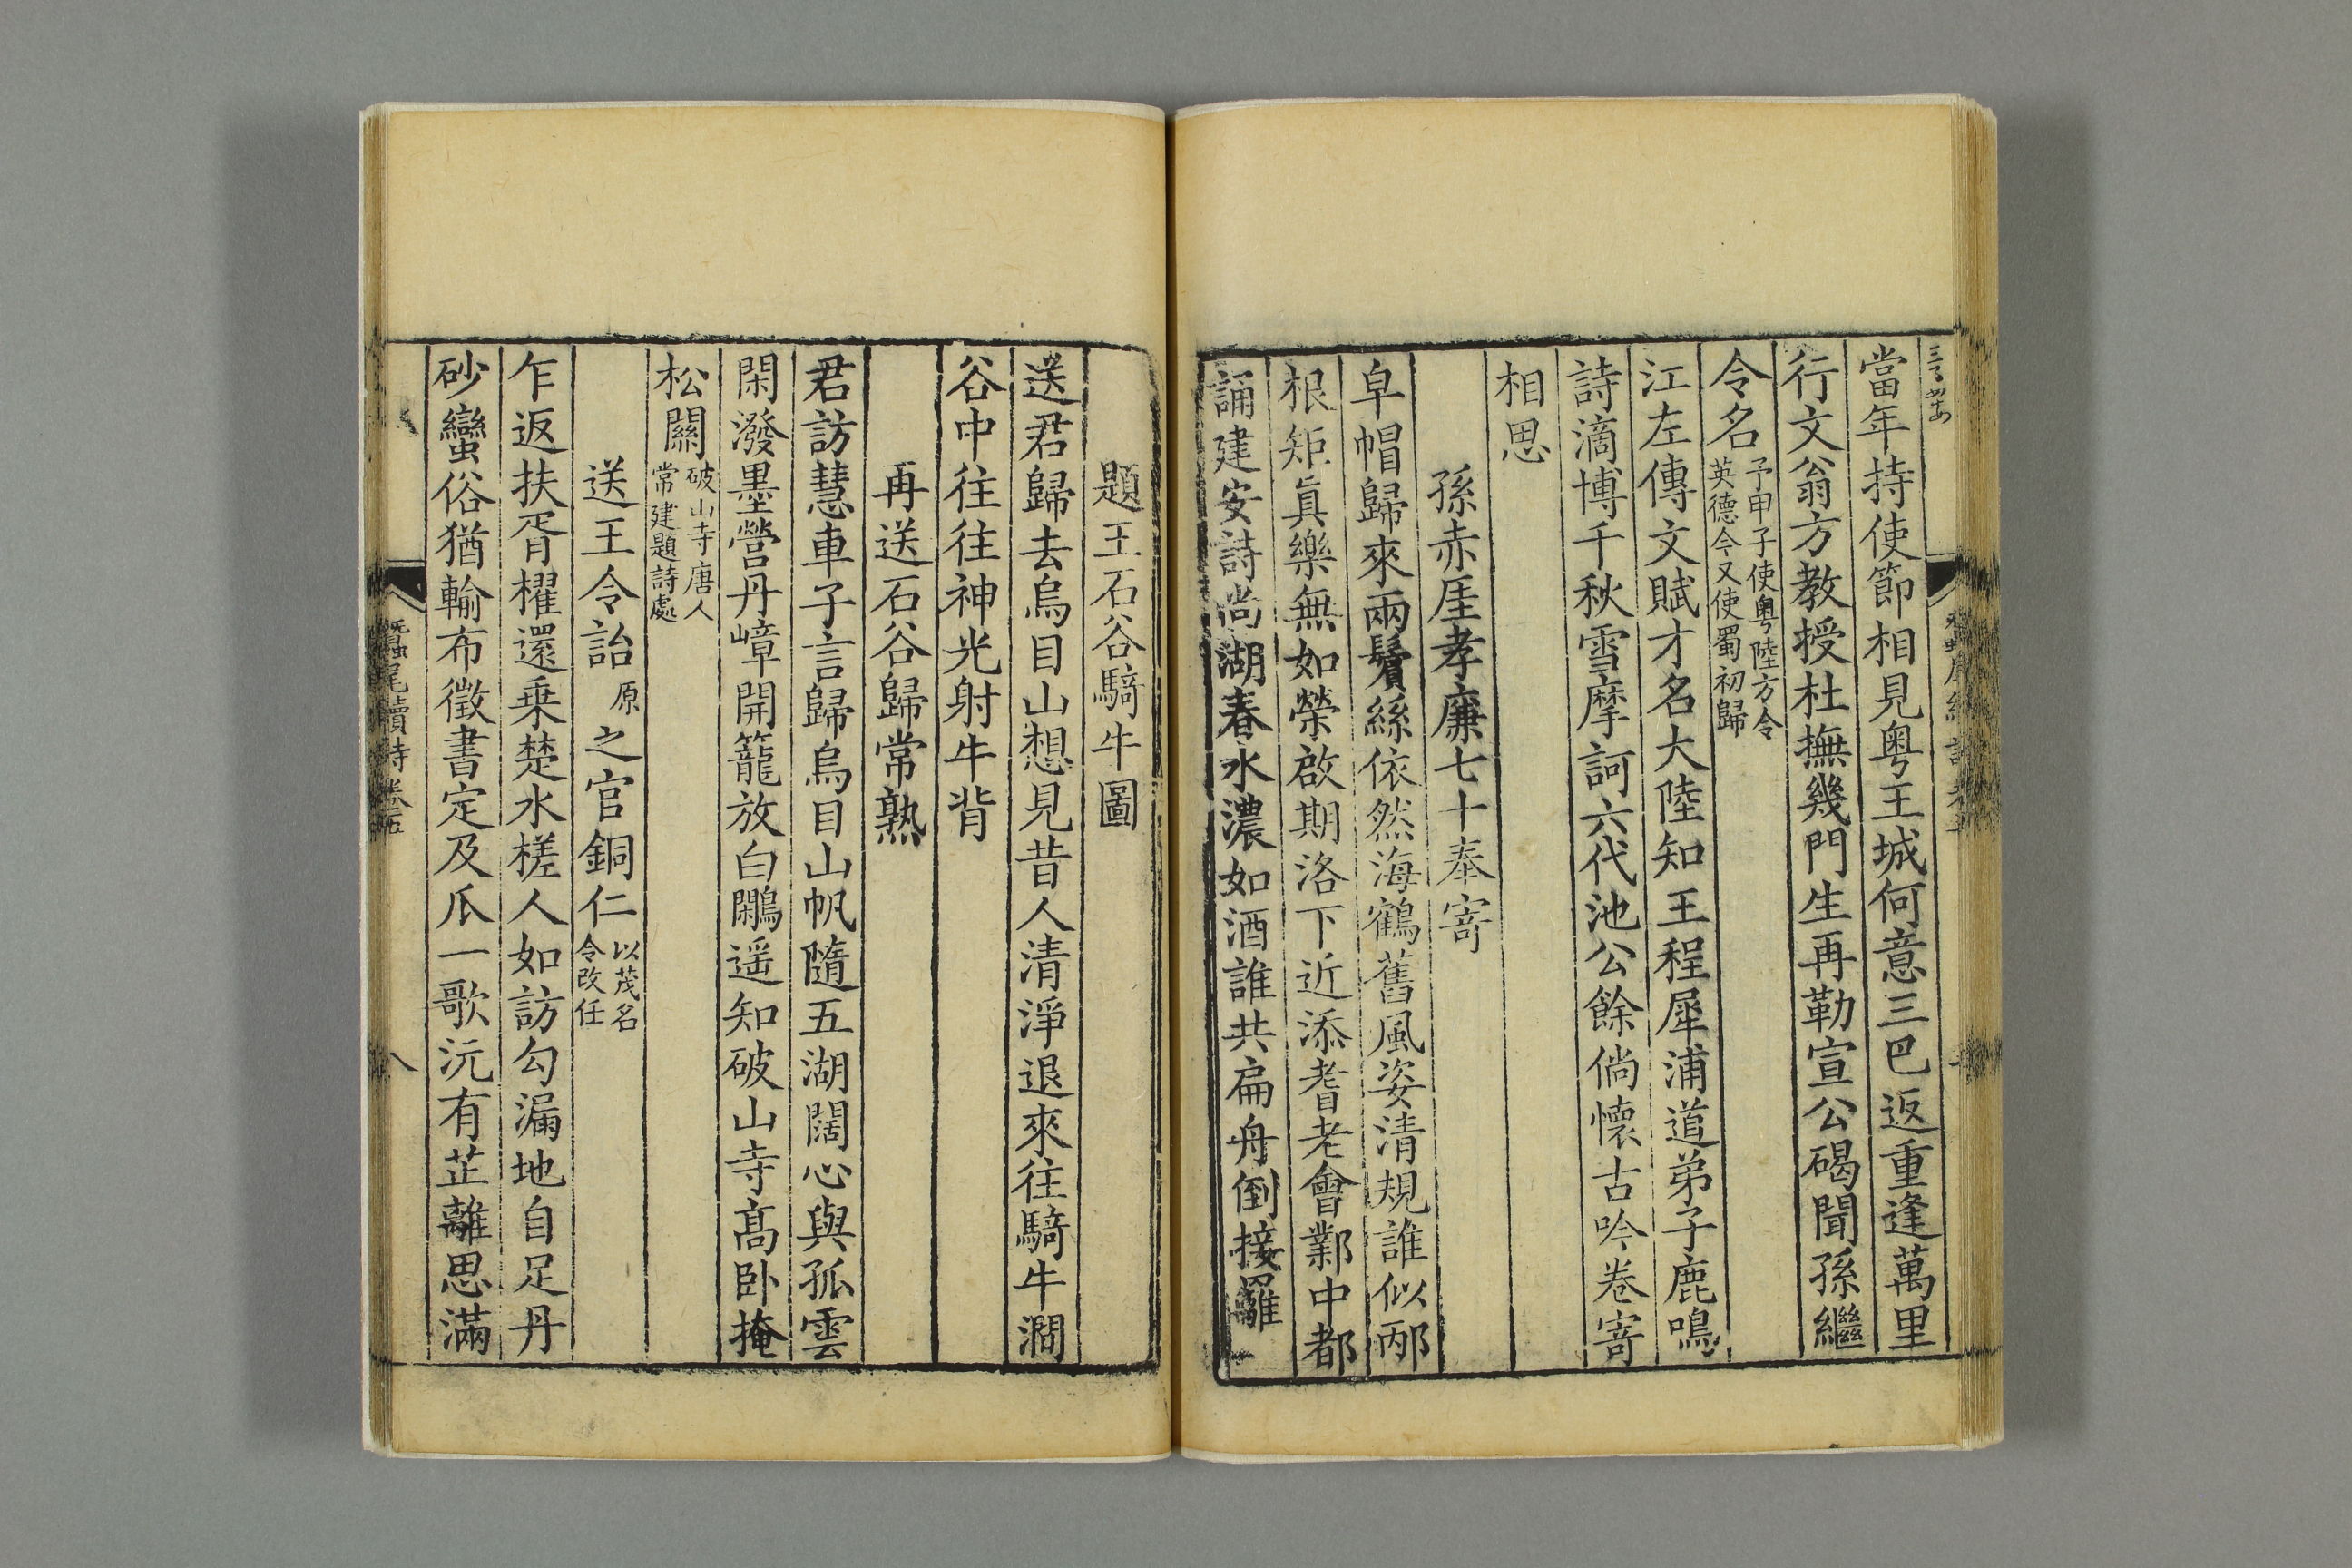 當年持使節相見粵王城何意三巴返重逢萬里
行文翁方教授杜撫幾門生再勒宣公碣聞孫繼
令名予甲子使粵陸方令
英德今又使蜀初歸
江左傳文賦才名大陸知王程犀浦道弟子鹿鳴
詩滴博千秋雪摩訶六代池公餘倘懷古吟卷寄
相思
孫赤厓孝廉七十奉寄
皁帽歸來兩鬢絲依然海鶴舊風姿清規誰似邴
根矩眞樂無如榮啟期洛下近添耆老會鄴中都
誦建安詩尚湖春水濃如酒誰共扁舟倒接䍦
題王石谷騎牛圖
送君歸去烏目山想見昔人清淨退來往騎牛澗
谷中往往神光射牛背
再送石谷歸常熟
君訪慧車子言歸烏目山帆隨五湖闊心與孤雲
閑潑墨營丹嶂開籠放白鷴遥知破山寺高卧掩
松關破山寺唐人
常建題詩處
送王令詒原之官銅仁以茂名
令改任
乍返扶胥櫂還乗楚水槎人如訪勾漏地自足丹
砂蠻俗猶輸布徵書定及瓜一歌沅有芷離思滿
蠶尾續詩卷五
八